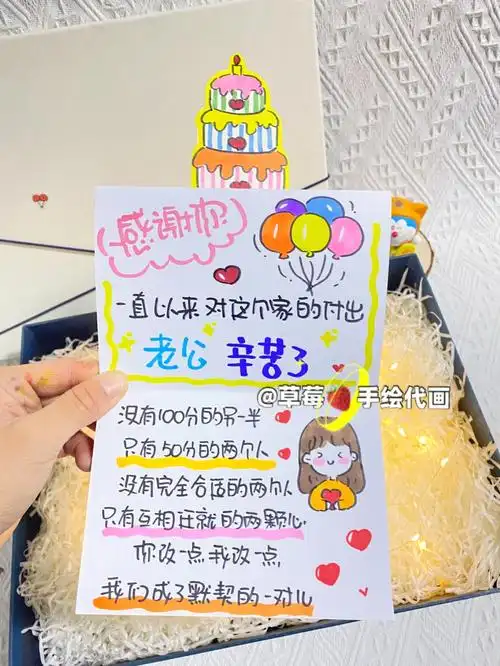 感谢你
一直以来对这个家的付出
老公 辛苦了
@草莓🍓手绘代画
没有100分的另一半
只有50分的两个人
没有完全合适的两个人
只有互相迁就的两颗心
你改一点我改一点
我们成了默契的一对儿